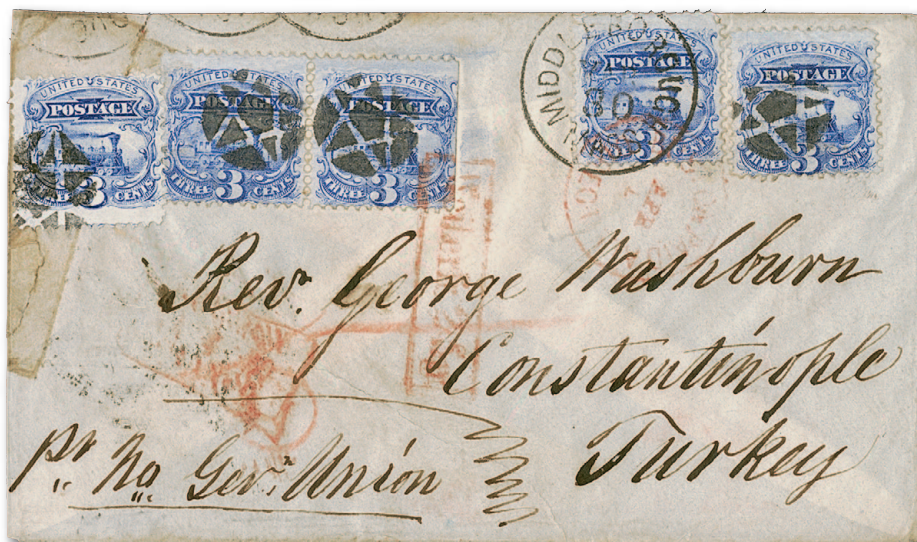 UNITED STATES
POSTAGE
THREE 3 CENTS
UNITED STATES
POSTAGE
THREE 3 CENTS
UNITED STATES
POSTAGE
THREE 3 CENTS
UNITED STATES
POSTAGE
3
UNITED STATES
POSTAGE
THREE 3 CENTS
MIDDLEBOROUGH
MASS
APR
Rev. George Washburn
Constantinople
Turkey
pr No Ger. Union